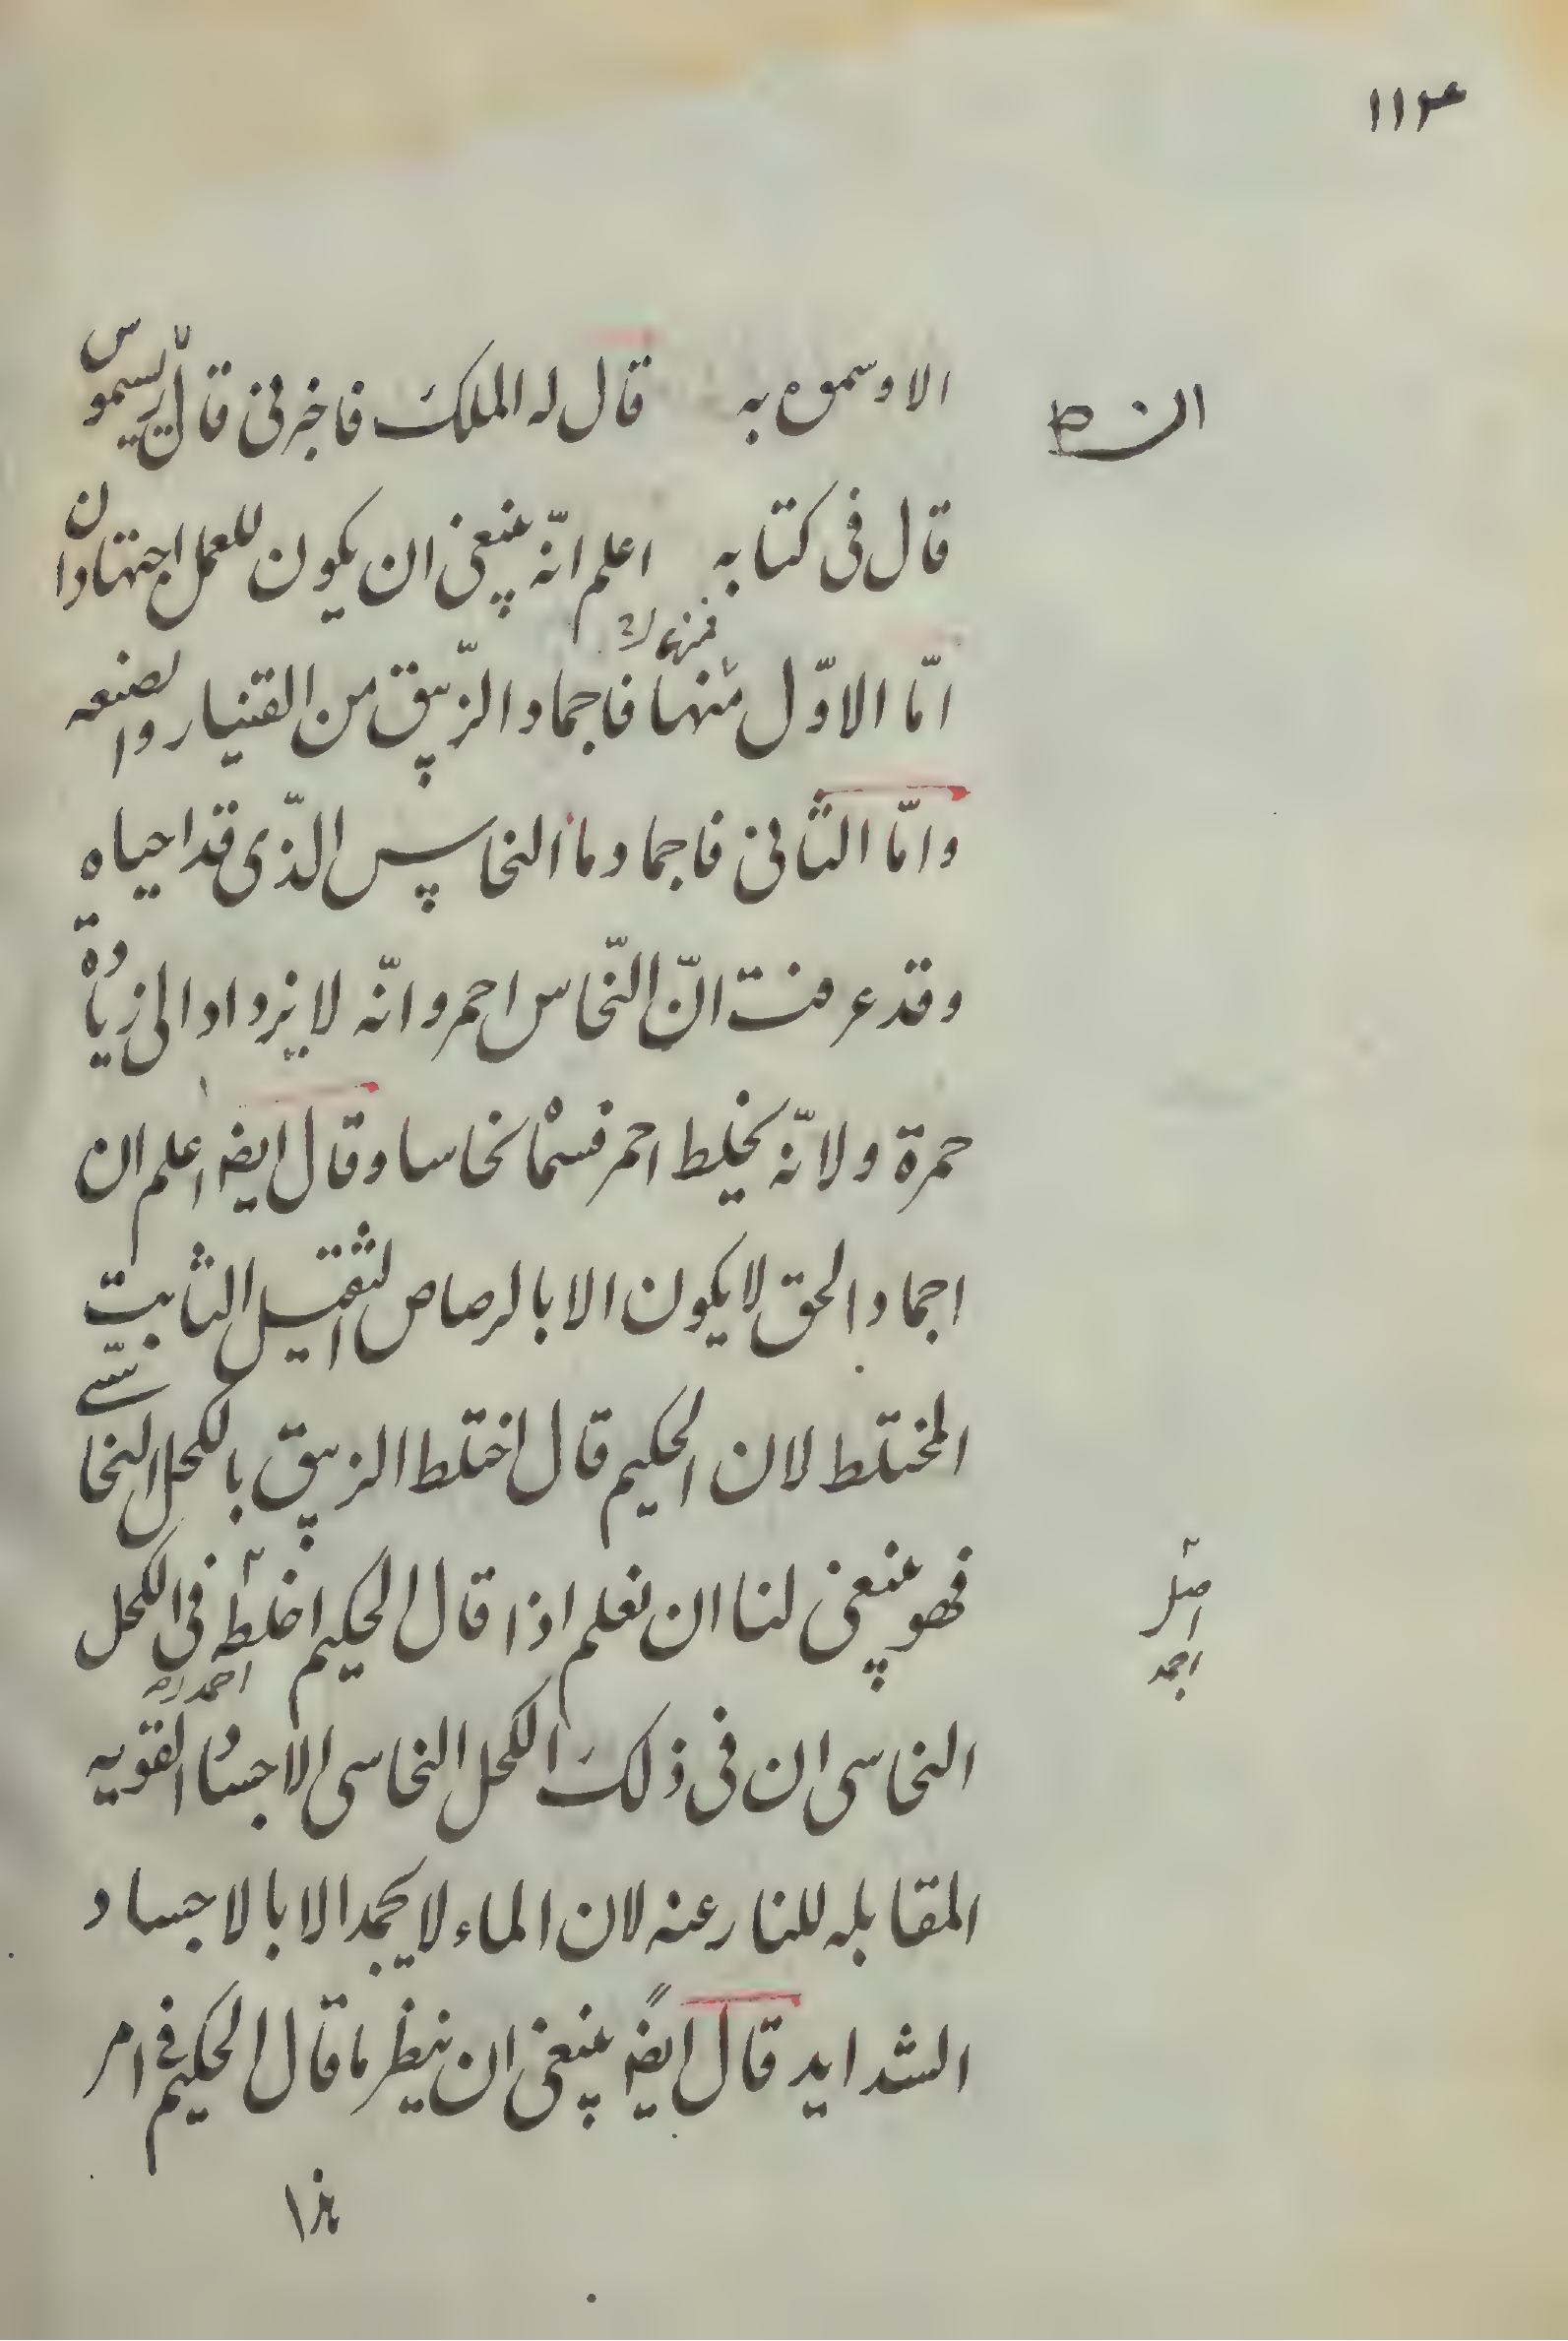 ١١٣
الا وسموه به قال له الملك فاخبرنى قال ان ريسموس
قال فى كتابه اعلم انّه ينبغى ان يكون للعمل اجتهادان
امّا الاوّل منها فاجماد الزّيبق من القنيار والصنعه
وامّا الثّانى فاجماد ماء النحاس الذّى قد احياه
وقد عرفت انّ النّحاس احمر وانّه لا يزداد الى زيادة
حمرة ولانّه يخلط احمر فسمّاه نحاسا وقال ايضا اعلم ان
اجماد الحق لا يكون الا بالرصاص الثقيل الثابت
المختلط لان الحكيم قال اختلط الزيبق بالكحل النحاسّے
فهو ينبغى لنا ان نعلم اذا قال الحكيم اخلط فى الكحل
النحاسى ان فى ذلك الكحل النحاسى الاجساد القويه
المقابله للنار عنه لان الماء لا يجمد الا بالاجساد
الشدايد قال ايضاً ينبغى ان ينظر ما قال الحكيم فى امر
هذا
ان
اصله
اجمد